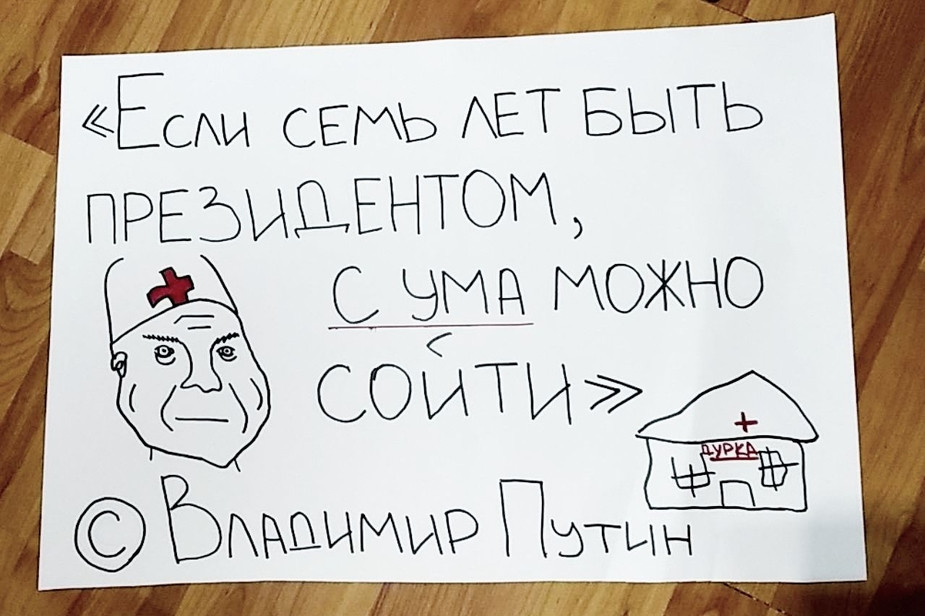 «Если семь лет быть
президентом,
с ума можно
сойти»
ДУРКА
© Владимир Путин